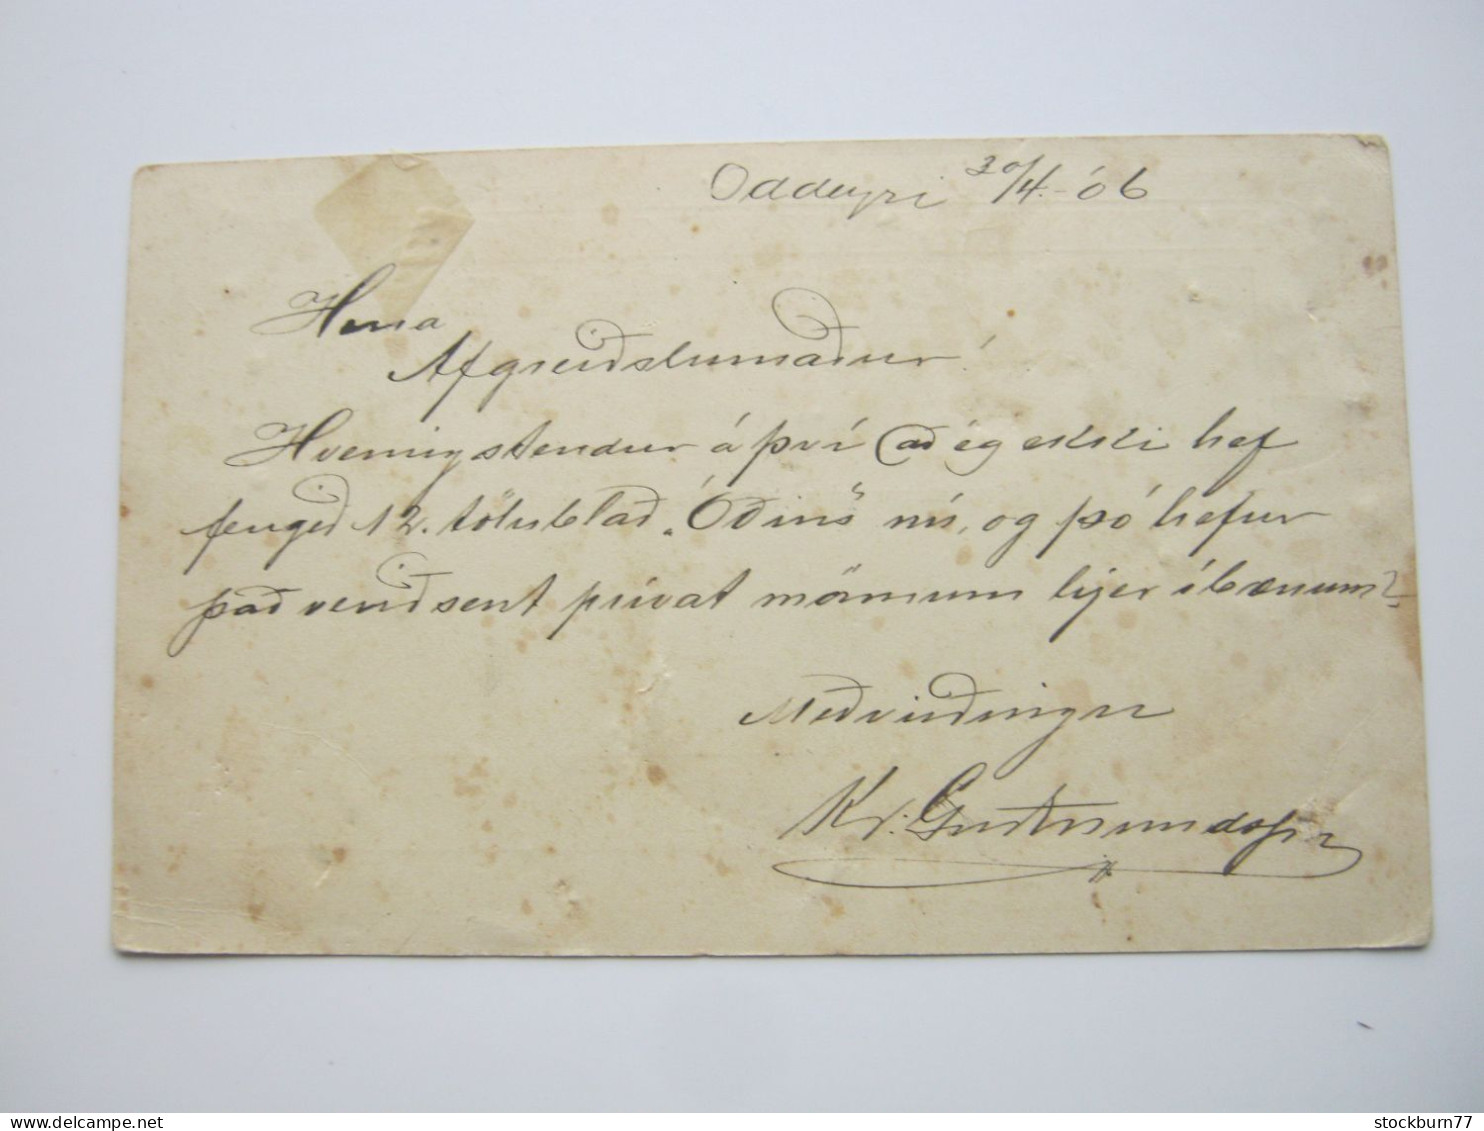 Oddeyri 30/4.-06
Herra
Afgreiðslumaður!
Hvernig stendur á því að ég ekki hef
fengið 12. tölublað "Óðins" nú, og þó hefur
það verið sent prívat mönnum hjer í bænum?
Með virðingu
Kr. Guðmundsson
stockburn77